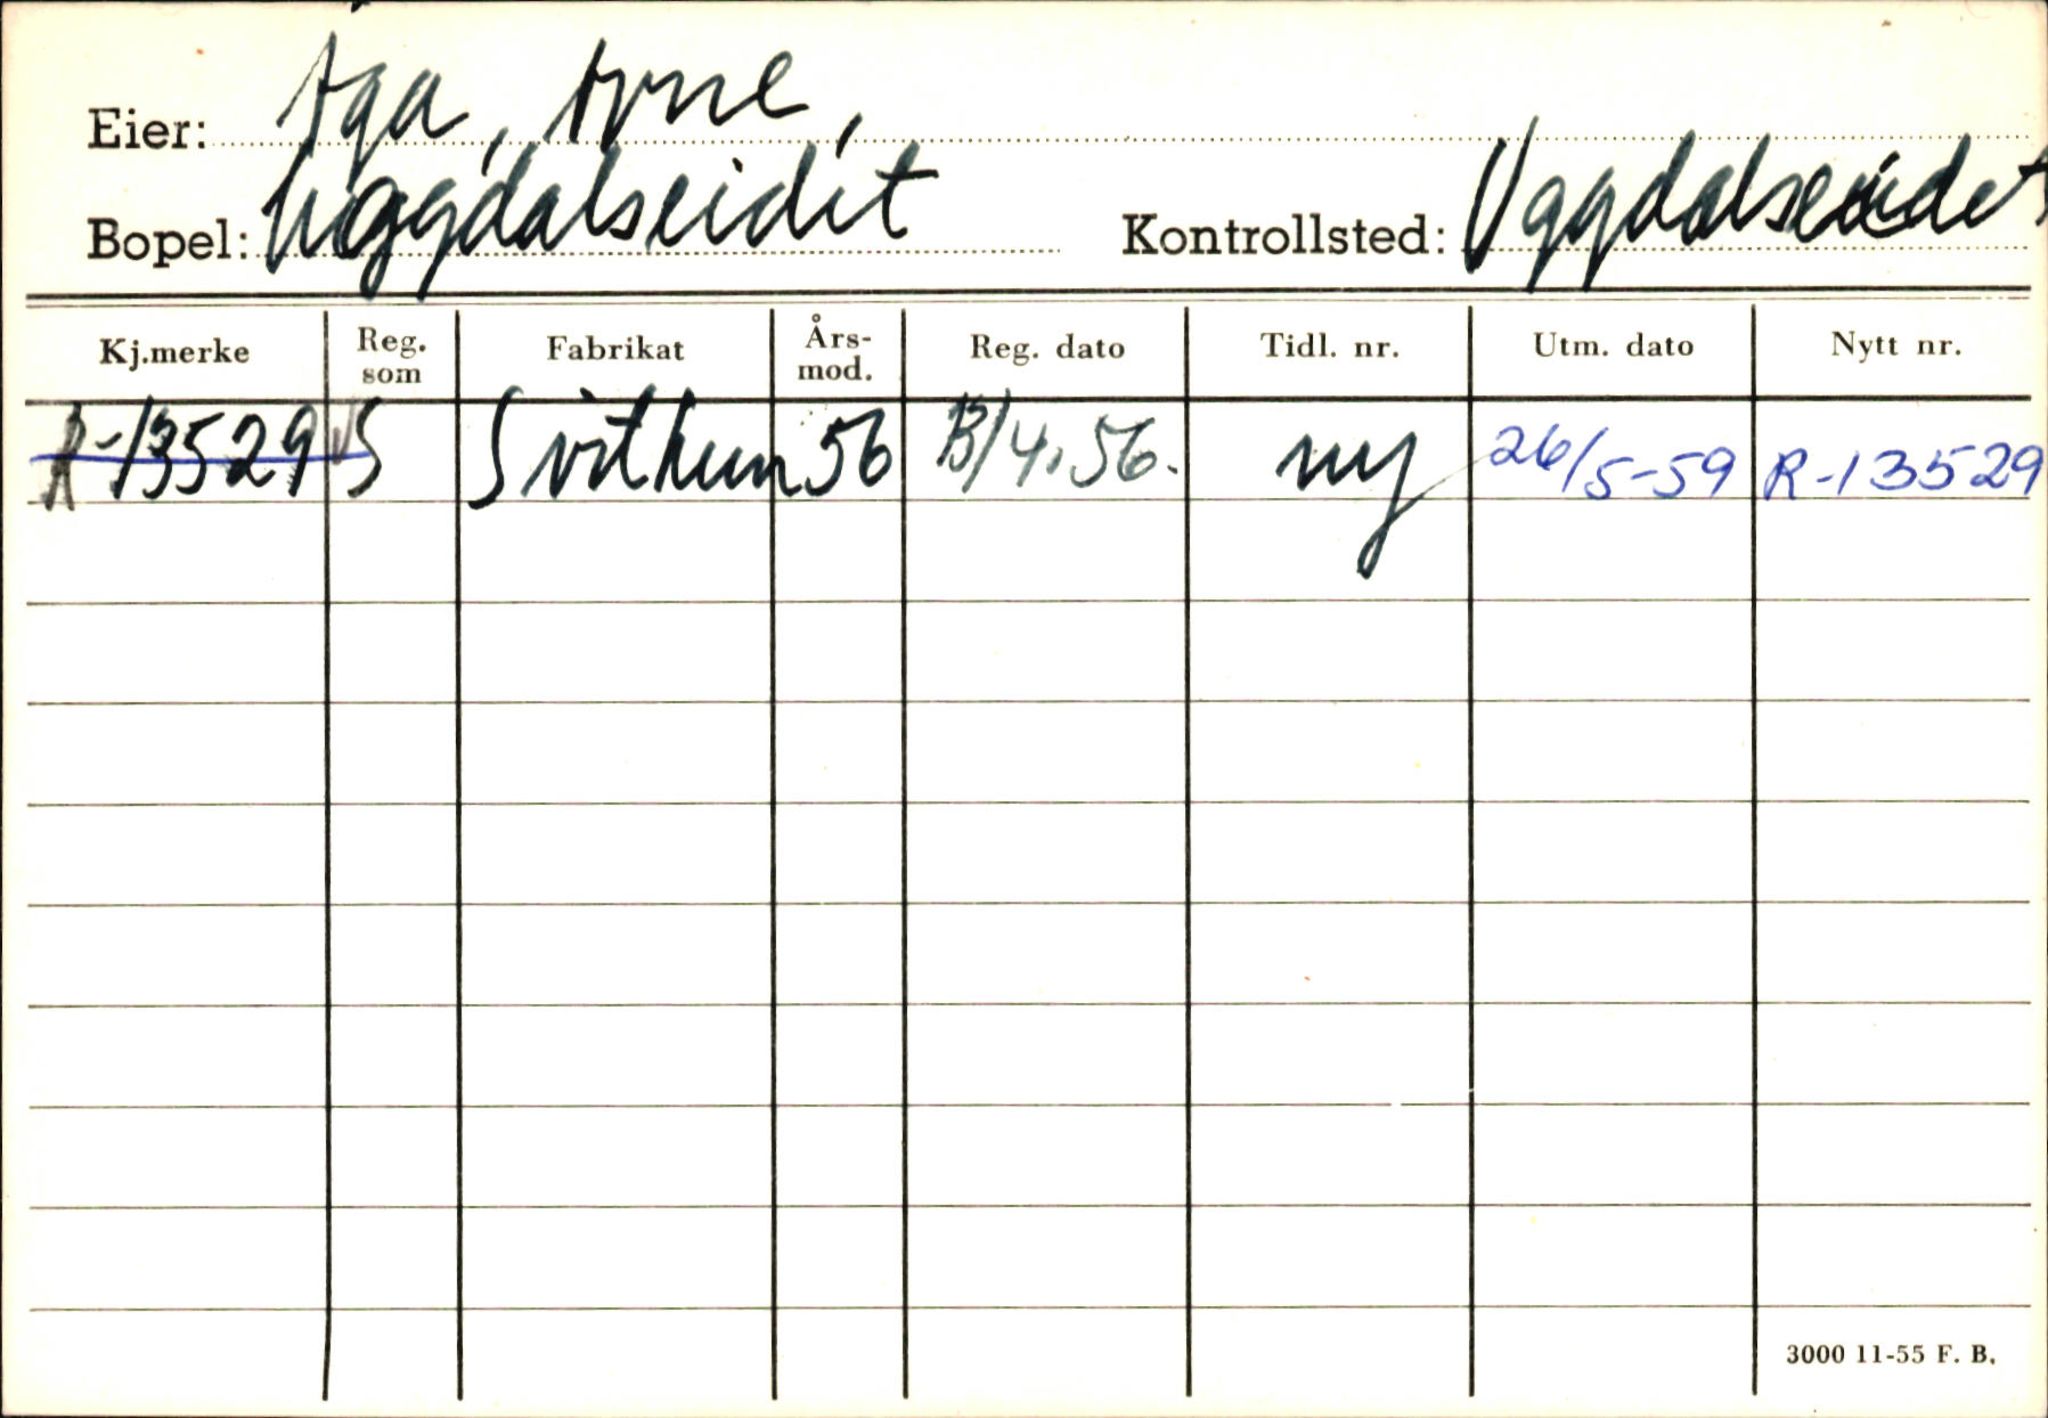 Eier: Aga, Arne,
Bopel: Uggdalseidet Kontrollsted: Uggdalseidet
Kj.merke Reg. som Fabrikat Års-mod. Reg. dato Tidl. nr. Utm. dato Nytt nr.
R-13529 S Svithun 56 13/4.56. ny 26/5-59 R-13529
3000 11-55 F. B.